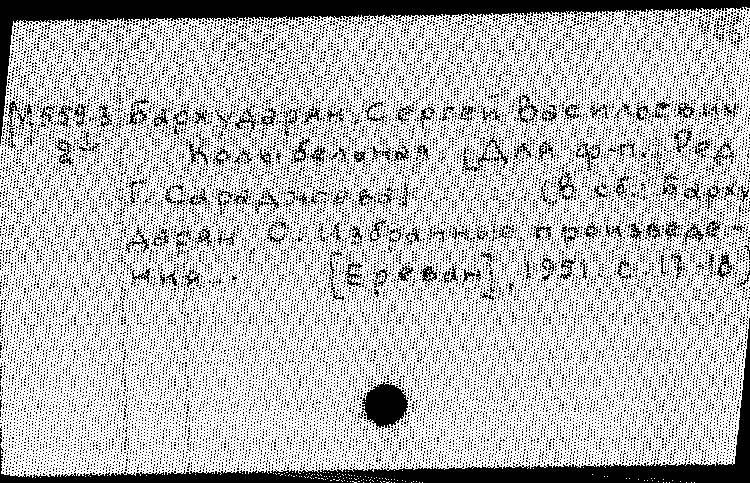 М 559.3 Бархударян, Сергей Васильевич
Колыбельная. [Для ф-п. Ред.
Г. Сараджева]. (В сб.: Барху
дарян С. Избранные произведе-
ния... [Ереван], 1951. с. 17-18)